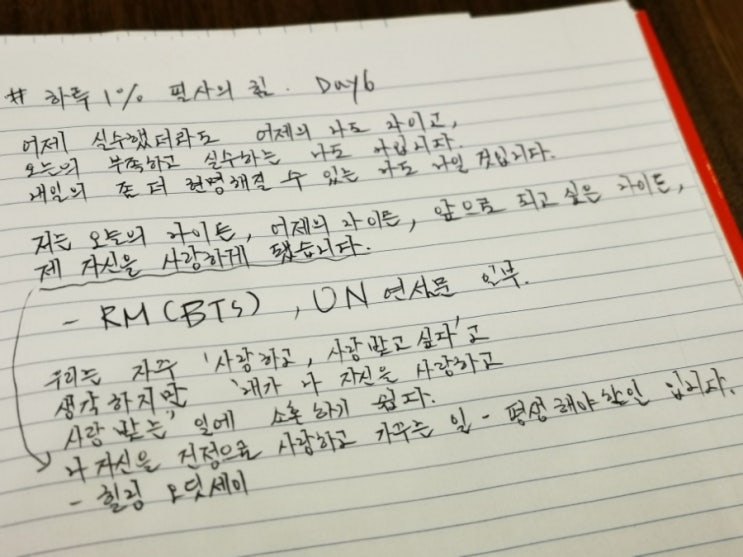 # 하루 1% 필사의 힘. Day6
어제 실수했더라도 어제의 나도 나이고,
오늘의 부족하고 실수하는 나도 나입니다.
내일의 좀 더 현명해질 수 있는 나도 나일 것입니다.
저는 오늘의 나이든, 어제의 나이든, 앞으로 되고 싶은 나이든,
제 자신을 사랑하게 됐습니다.
- RM(BTS), UN 연설문 일부.
우리는 자주 '사랑하고, 사랑 받고 싶다'고
생각하지만 '내가 나 자신을 사랑하고
사랑 받는' 일에 소홀하기 쉽다.
나 자신을 진정으로 사랑하고 가꾸는 일 - 평생해야 할 일 입니다.
- 힐링 오딧세이